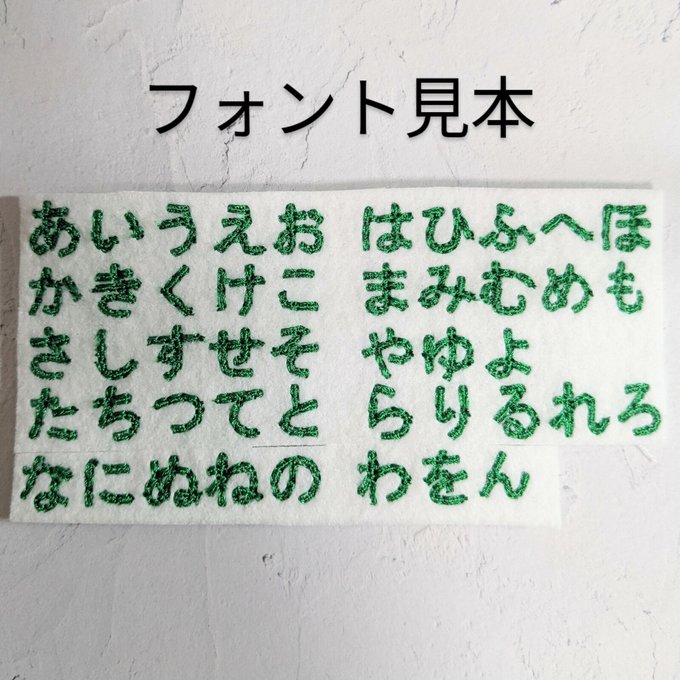 フォント見本
あいうえお はひふへほ
かきくけこ まみむめも
さしすせそ やゆよ
たちつてと らりるれろ
なにぬねの わをん